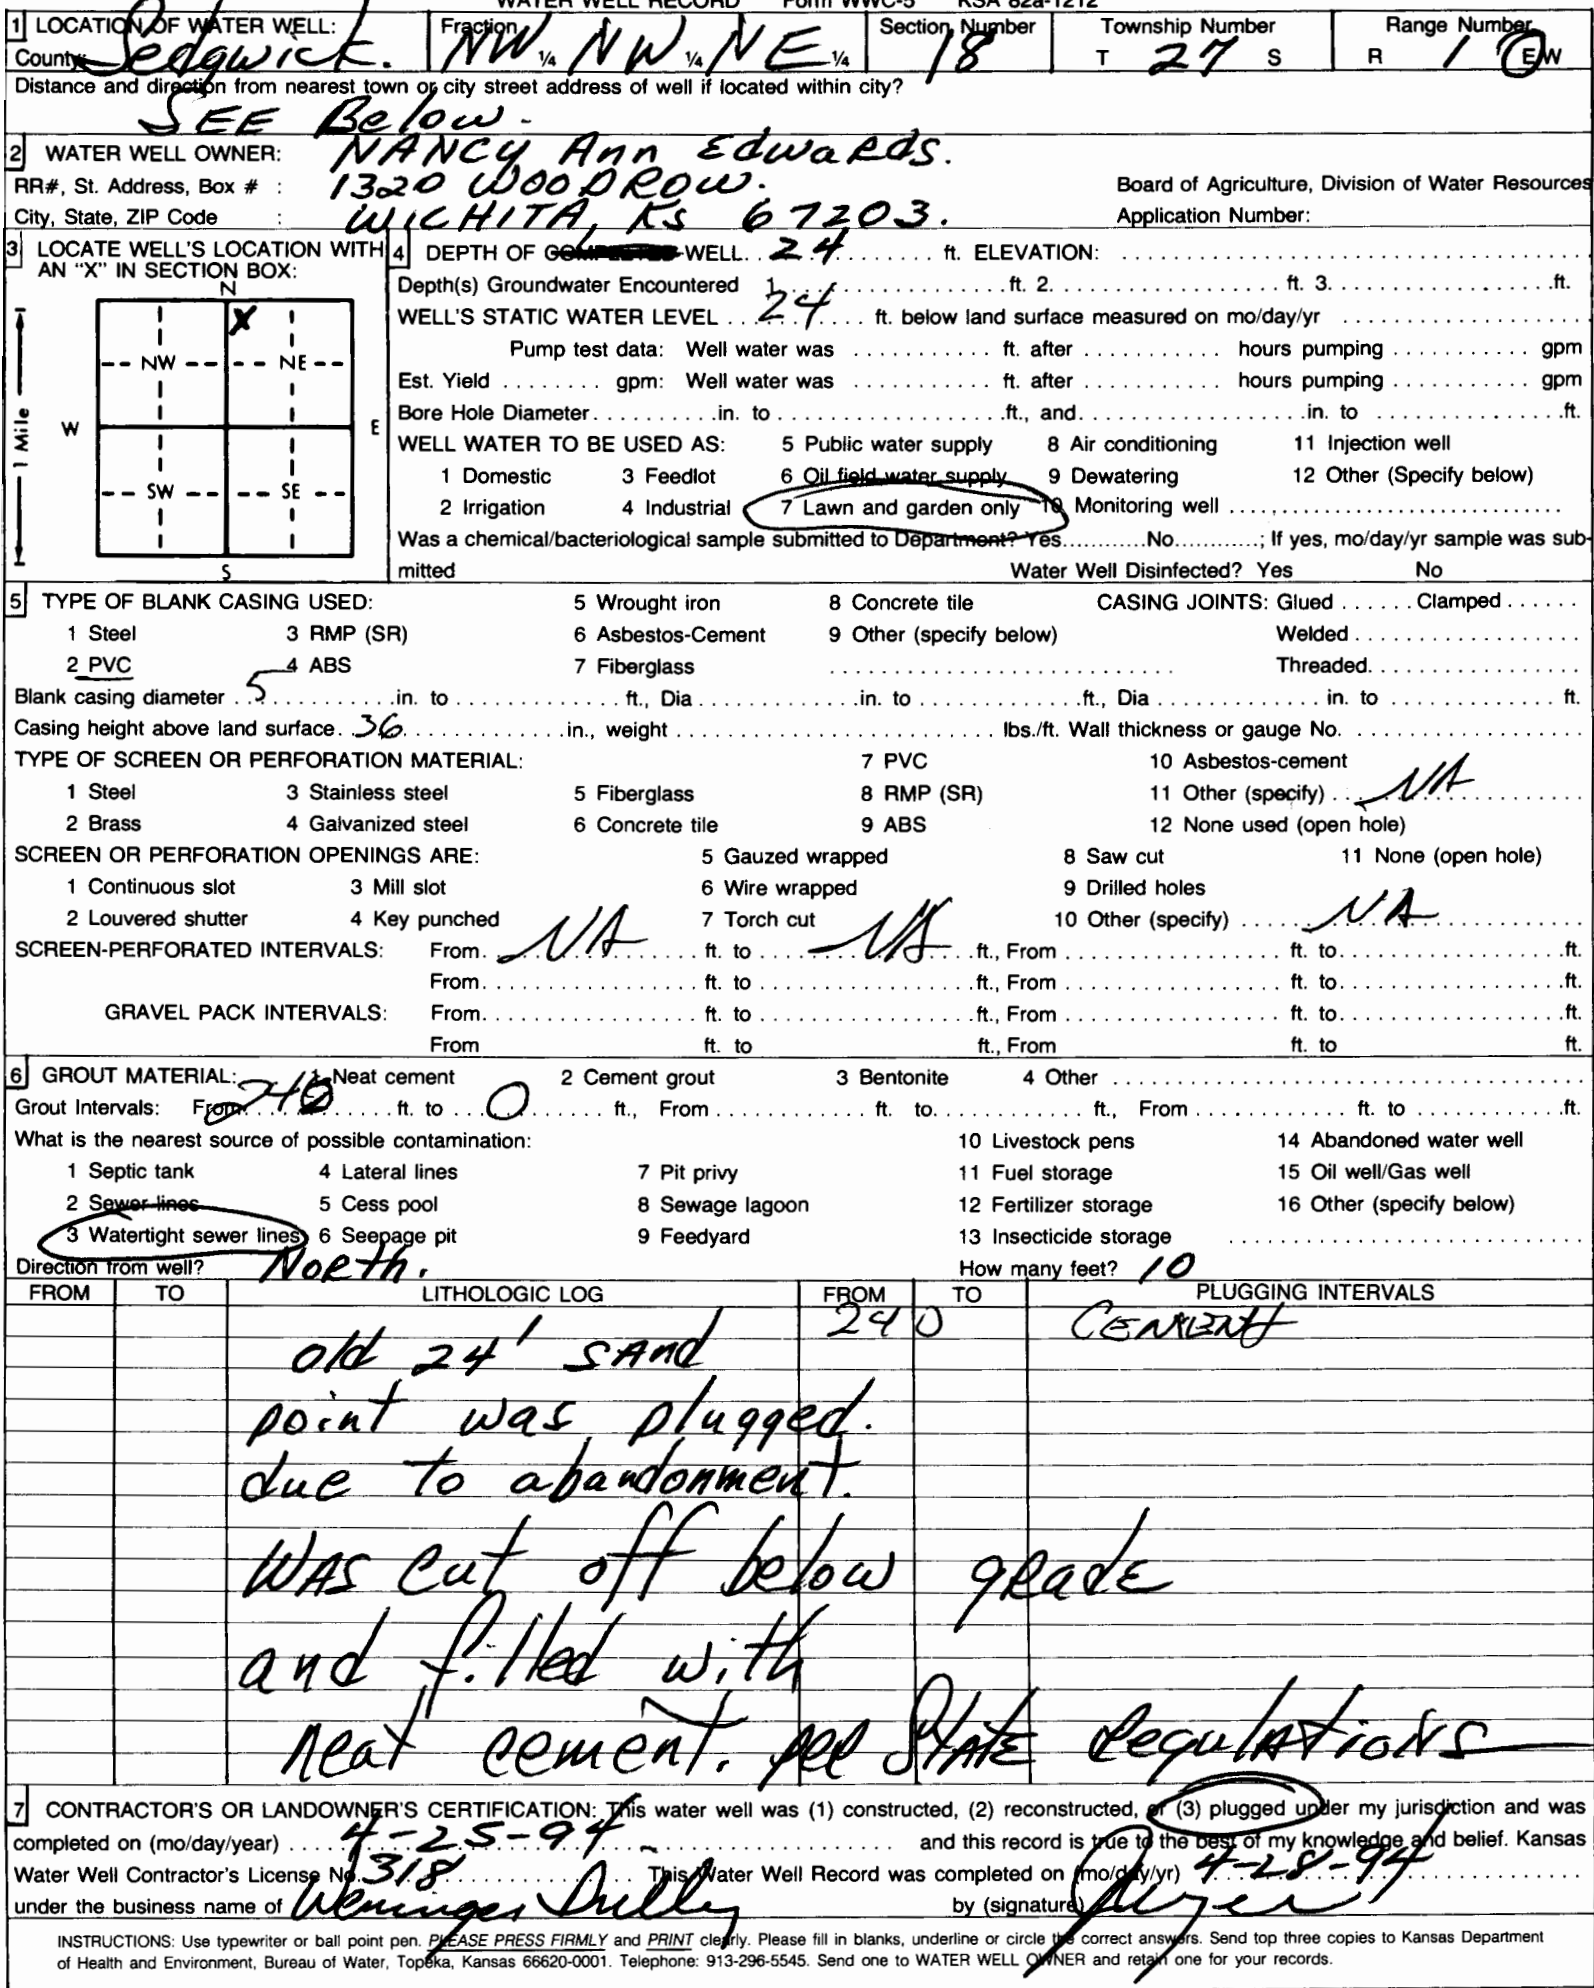 WATER WELL RECORD Form WWC-5 KSA 82a-1212
1 LOCATION OF WATER WELL: Fraction Section Number Township Number Range Number
County: Sedgwick. NW ¼ NW ¼ NE ¼ 18 T 27 S R 1 E W
Distance and direction from nearest town or city street address of well if located within city?
SEE Below.
2 WATER WELL OWNER: NANCY Ann Edwards.
RR#, St. Address, Box # : 1320 WOODROW. Board of Agriculture, Division of Water Resources
City, State, ZIP Code : WICHITA, Ks 67203. Application Number:
3 LOCATE WELL'S LOCATION WITH AN "X" IN SECTION BOX:
N
X
NW NE
W E
1 Mile
SW SE
S
4 DEPTH OF WELL.. 24 ........ ft. ELEVATION: ........
Depth(s) Groundwater Encountered 1. ........ ft. 2. ........ ft. 3. ........ ft.
WELL'S STATIC WATER LEVEL .... 24 .... ft. below land surface measured on mo/day/yr ........
Pump test data: Well water was ........ ft. after ........ hours pumping ........ gpm
Est. Yield ........ gpm: Well water was ........ ft. after ........ hours pumping ........ gpm
Bore Hole Diameter ........ in. to ........ ft., and ........ in. to ........ ft.
WELL WATER TO BE USED AS: 5 Public water supply 8 Air conditioning 11 Injection well
1 Domestic 3 Feedlot 6 Oil field water supply 9 Dewatering 12 Other (Specify below)
2 Irrigation 4 Industrial 7 Lawn and garden only 10 Monitoring well ........
Was a chemical/bacteriological sample submitted to Department? Yes........No........; If yes, mo/day/yr sample was sub-
mitted Water Well Disinfected? Yes No
5 TYPE OF BLANK CASING USED: 5 Wrought iron 8 Concrete tile CASING JOINTS: Glued ...... Clamped ......
1 Steel 3 RMP (SR) 6 Asbestos-Cement 9 Other (specify below) Welded ........
2 PVC 4 ABS 7 Fiberglass ........ Threaded ........
Blank casing diameter .. 5 ........ in. to ........ ft., Dia ........ in. to ........ ft., Dia ........ in. to ........ ft.
Casing height above land surface.. 36 ........ in., weight ........ lbs./ft. Wall thickness or gauge No. ........
TYPE OF SCREEN OR PERFORATION MATERIAL: 7 PVC 10 Asbestos-cement
1 Steel 3 Stainless steel 5 Fiberglass 8 RMP (SR) 11 Other (specify) .... NA
2 Brass 4 Galvanized steel 6 Concrete tile 9 ABS 12 None used (open hole)
SCREEN OR PERFORATION OPENINGS ARE: 5 Gauzed wrapped 8 Saw cut 11 None (open hole)
1 Continuous slot 3 Mill slot 6 Wire wrapped 9 Drilled holes
2 Louvered shutter 4 Key punched 7 Torch cut 10 Other (specify) ..... NA ........
SCREEN-PERFORATED INTERVALS: From.. NA ........ ft. to ..... NA ... ft., From ........ ft. to ........ ft.
From ........ ft. to ........ ft., From ........ ft. to ........ ft.
GRAVEL PACK INTERVALS: From ........ ft. to ........ ft., From ........ ft. to ........ ft.
From ft. to ft., From ft. to ft.
6 GROUT MATERIAL: 1 Neat cement 2 Cement grout 3 Bentonite 4 Other ........
Grout Intervals: From ........ ft. to ... 0 ........ ft., From ........ ft. to ........ ft., From ........ ft. to ........ ft.
What is the nearest source of possible contamination: 10 Livestock pens 14 Abandoned water well
1 Septic tank 4 Lateral lines 7 Pit privy 11 Fuel storage 15 Oil well/Gas well
2 Sewer lines 5 Cess pool 8 Sewage lagoon 12 Fertilizer storage 16 Other (specify below)
3 Watertight sewer lines 6 Seepage pit 9 Feedyard 13 Insecticide storage ........
Direction from well? North. How many feet? 10
FROM TO LITHOLOGIC LOG FROM TO PLUGGING INTERVALS
24 0 0 CEMENT
old 24' SAnd
point was plugged.
due to abandonment.
WAS cut off below grade
and filled with
neat cement. per STATE RegulATIONS
7 CONTRACTOR'S OR LANDOWNER'S CERTIFICATION: This water well was (1) constructed, (2) reconstructed, or (3) plugged under my jurisdiction and was
completed on (mo/day/year) .... 4-25-94 ........ and this record is true to the best of my knowledge and belief. Kansas
Water Well Contractor's License No. 318 ........ This Water Well Record was completed on (mo/day/yr) 4-28-94 ........
under the business name of Weninger Drilling by (signature)
INSTRUCTIONS: Use typewriter or ball point pen. PLEASE PRESS FIRMLY and PRINT clearly. Please fill in blanks, underline or circle the correct answers. Send top three copies to Kansas Department
of Health and Environment, Bureau of Water, Topeka, Kansas 66620-0001. Telephone: 913-296-5545. Send one to WATER WELL OWNER and retain one for your records.